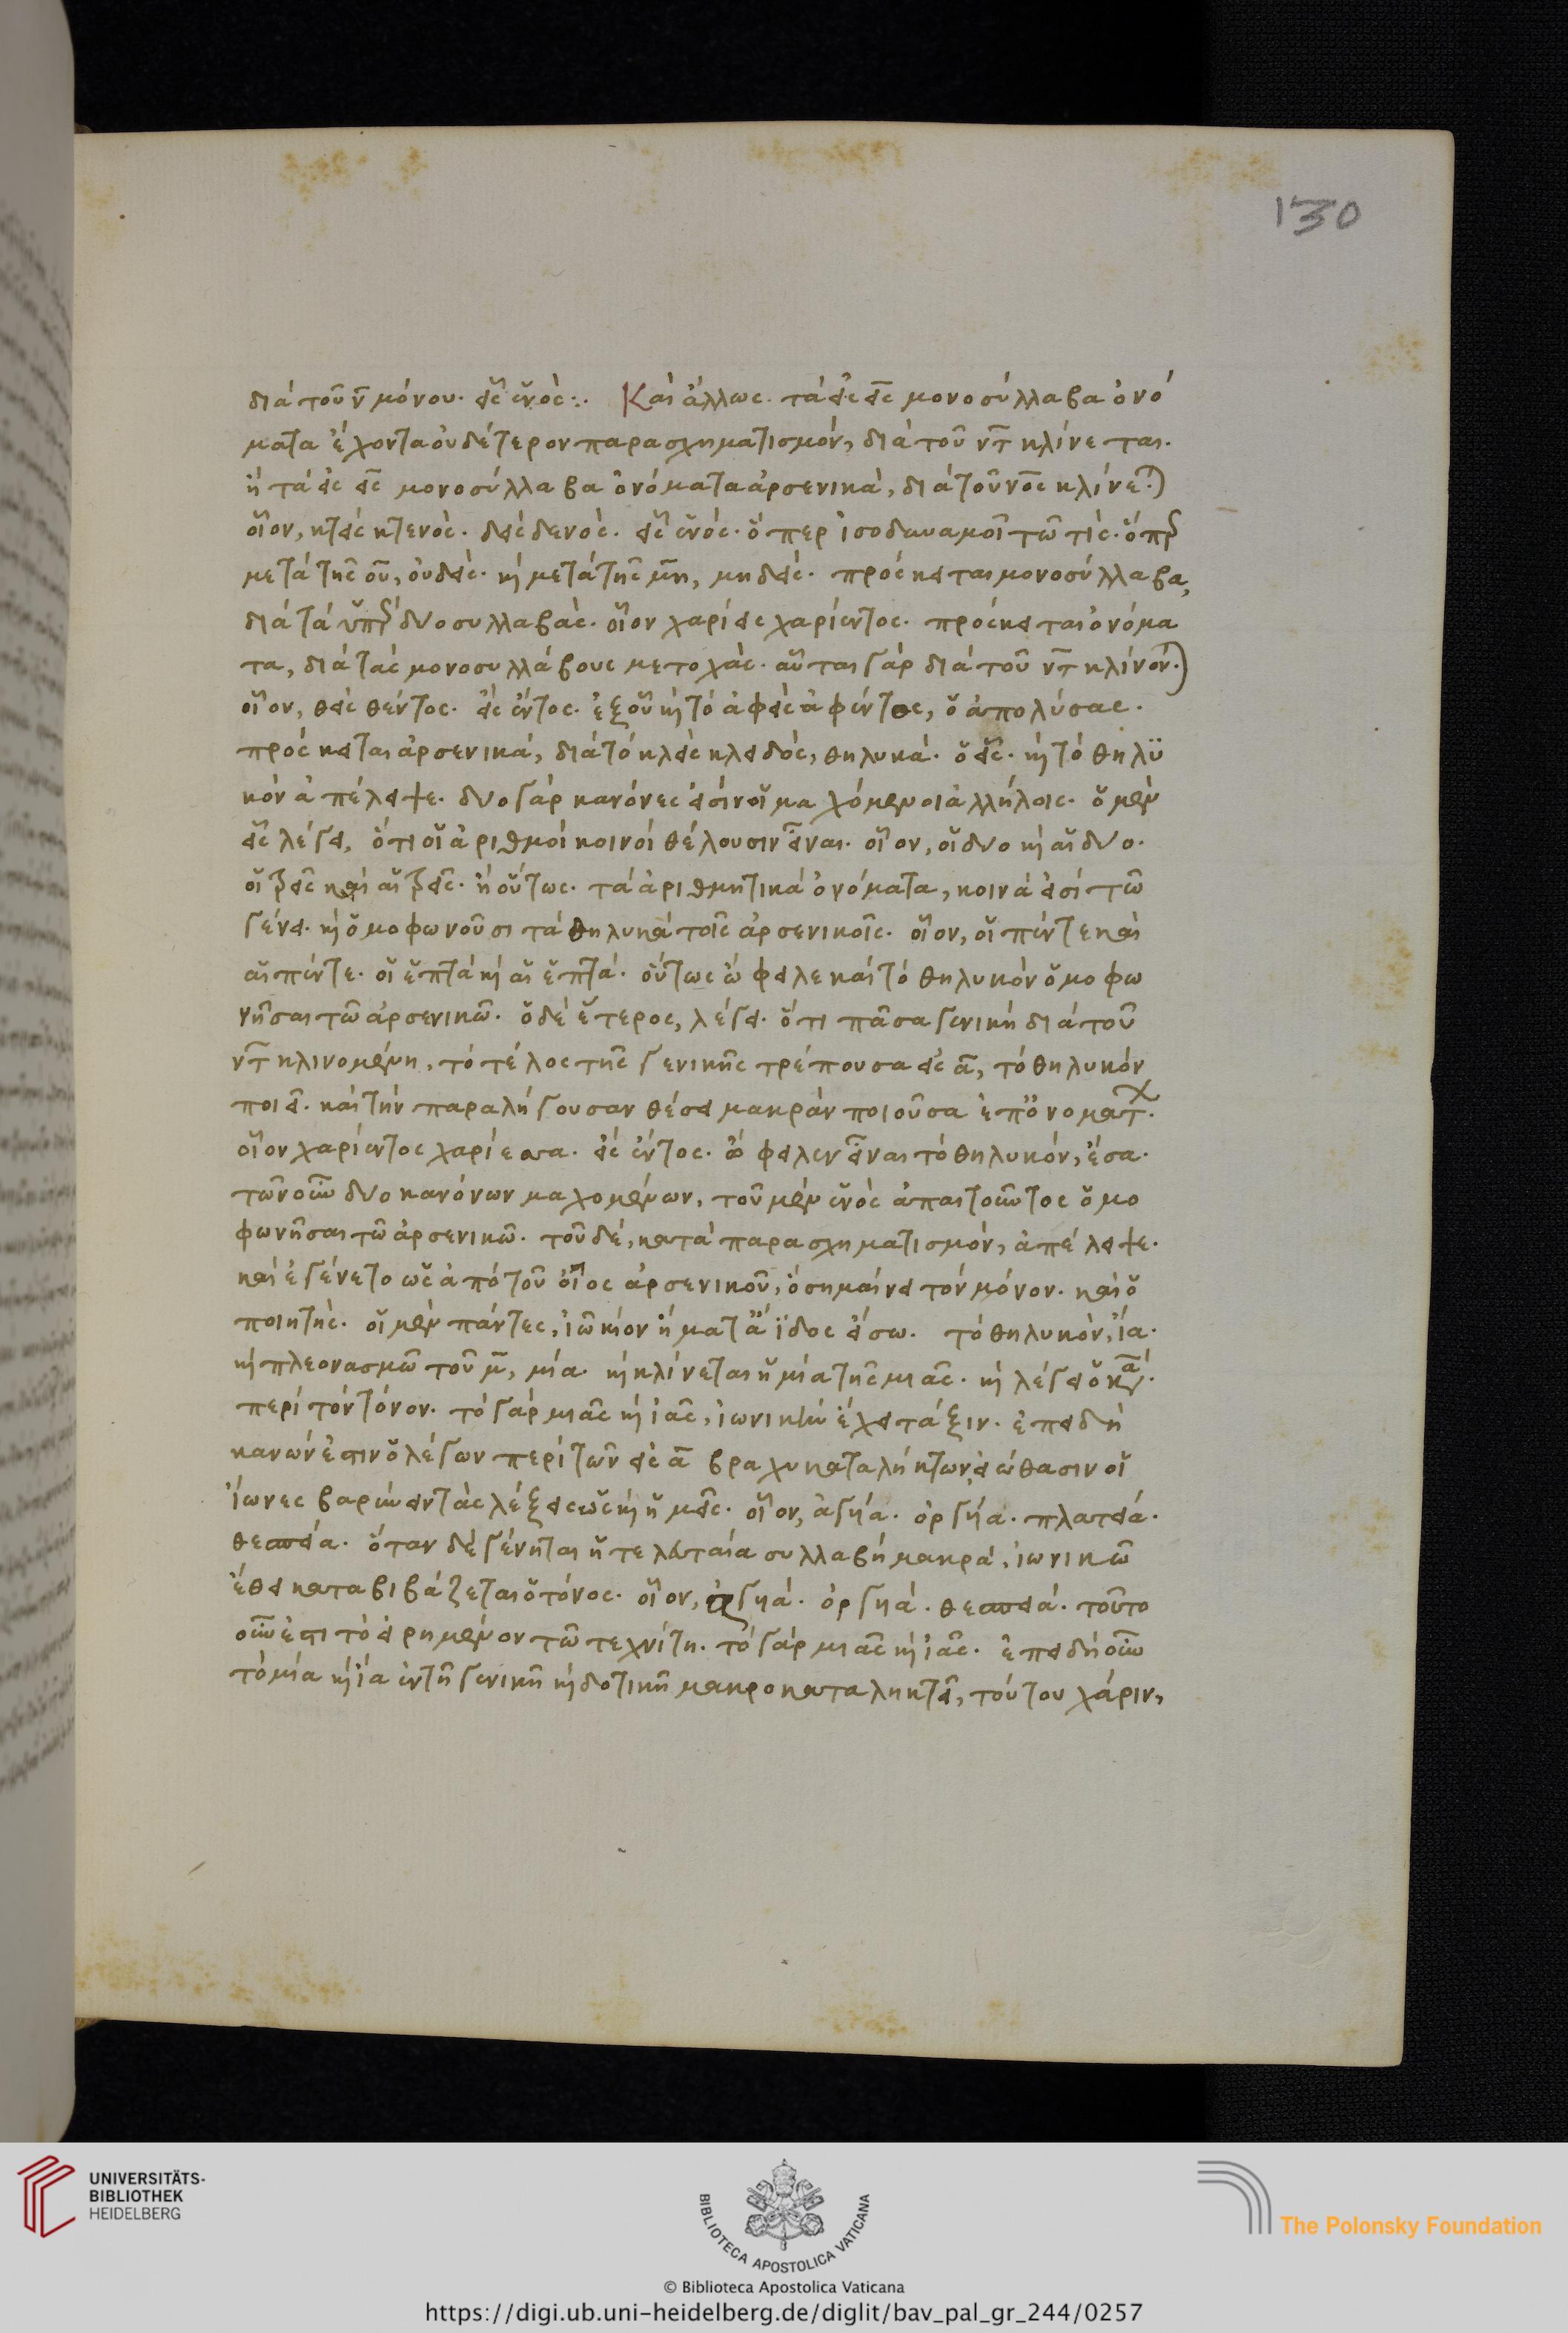 130
διὰ τοῦ ν μόνου. εἷς ἑνός:. Καὶ ἄλλως. τὰ εἰς εις μονοσύλλαβα ὀνό
ματα ἔχοντα οὐδέτερον παρασχηματισμόν, διὰ τοῦ ντ κλίνεται.
ἢ τὰ εἰς εις μονοσύλλαβα ὀνόματα ἀρσενικά, διὰ τοῦ νος κλίνεται
οἷον, κτεὶς κτενός. δεὶς δενός. εἷς ἑνός. ὅπερ ἰσοδυναμοῖ τῶ τίς. ὅπερ
μετὰ τῆς ου, οὐδείς. καὶ μετὰ τῆς μη, μηδείς. πρόσκειται μονοσύλλαβα,
διὰ τὰ ὑπὲρ δύο συλλαβάς. οἷον χαρίεις χαρίεντος. πρόσκειται ὀνόμα
τα, διὰ τὰς μονοσυλλάβους μετοχάς. αὗται γὰρ διὰ τοῦ ντ κλίνονται.
οἷον, θεὶς θέντος. εἲς ἕντος. ἐξ οὗ καὶ τὸ ἀφεὶς ἀφέντος, ὁ ἀπολύσας.
πρόσκειται ἀρσενικά, διὰ τὸ κλεὶς κλειδός, θηλυκά. ὁ εἷς. καὶ τὸ θηλυ
κὸν ἀπέλειψε. δύο γὰρ κανόνες εἰσὶν οἱ μαχόμενοι ἀλλήλοις. ὁ μὲν
εἷς λέγει, ὅτι οἱ ἀριθμοὶ κοινοὶ θέλουσιν εἶναι. οἷον, οἱ δύο καὶ αἱ δύο.
οἱ τρεῖς καὶ αἱ τρεῖς. ἢ οὕτως. τὰ ἀριθμητικὰ ὀνόματα, κοινά εἰσι τῶ
γένει. καὶ ὁμοφωνοῦσι τὰ θηλυκὰ τοῖς ἀρσενικοῖς. οἷον, οἱ πέντε καὶ
αἱ πέντε. οἱ ἑπτὰ καὶ αἱ ἑπτά. οὕτως ὤφειλε καὶ τὸ θηλυκὸν ὁμοφω
νῆσαι τῶ ἀρσενικῶ. ὁ δὲ ἕτερος, λέγει. ὅτι πᾶσα γενικὴ διὰ τοῦ
ντ κλινομένη, τὸ τέλος τῆς γενικῆς τρέπουσα εἰς α, τὸ θηλυκὸν
ποιεῖ. καὶ τὴν παραλήγουσαν θέσει μακρὰν ποιοῦσα ἐπ' ὀνομάτων.
οἷον χαρίεντος χαρίεσσα. εἲς ἕντος. ὤφειλεν εἶναι τὸ θηλυκόν, ἕσα.
τῶν οὖν δύο κανόνων μαχομένων, τοῦ μὲν ἑνὸς ἀπαιτοῦντος ὁμο
φωνῆσαι τῶ ἀρσενικῶ. τοῦ δέ, κατὰ παρασχηματισμόν, ἀπέλειψε.
καὶ ἐγένετο ὡς ἀπὸ τοῦ οἶος ἀρσενικοῦ, ὃ σημαίνει τὸν μόνον. καὶ ὁ
ποιητής. οἱ μὲν πάντες, ἰῶ κίον ἤματ' ἄϊδος εἴσω. τὸ θηλυκόν, ἴα.
καὶ πλεονασμῶ τοῦ μ, μία. καὶ κλίνεται ἡ μία τῆς μιᾶς. καὶ λέγει ὁ κανὼν.
περὶ τὸν τόνον. τὸ γὰρ μιᾶς καὶ ἰᾶς, ἰωνικὴν ἔχει τάξιν. ἐπειδὴ
κανών ἐστιν ὁ λέγων περὶ τῶν εἰς α βραχυκαταλήκτων, εἰώθασιν οἱ
ἴωνες βαρύνειν τὰς λέξεις ὡς καὶ ἡμεῖς. οἷον, ἀγυιά. ὀργυιά. πλατεῖα.
θεστεία. ὅταν δὲ γένηται ἡ τελευταία συλλαβὴ μακρά, ἰωνικῶ
ἔθει καταβιβάζεται ὁ τόνος. οἷον, ἀγυιά. ὀργυιά. θεστειά. τοῦτο
οὖν ἐστι τὸ εἰρημένον τῶ τεχνίτη. τὸ γὰρ μιᾶς καὶ ἰᾶς. ἐπειδὴ οὖν
τὸ μία καὶ ἴα ἐν τῆ γενικῆ καὶ δοτικῆ μακροκαταληκτεῖ, τούτου χάριν,
UNIVERSITÄTS-
BIBLIOTHEK
HEIDELBERG
BIBLIOTECA APOSTOLICA VATICANA
The Polonsky Foundation
© Biblioteca Apostolica Vaticana
https://digi.ub.uni-heidelberg.de/diglit/bav_pal_gr_244/0257